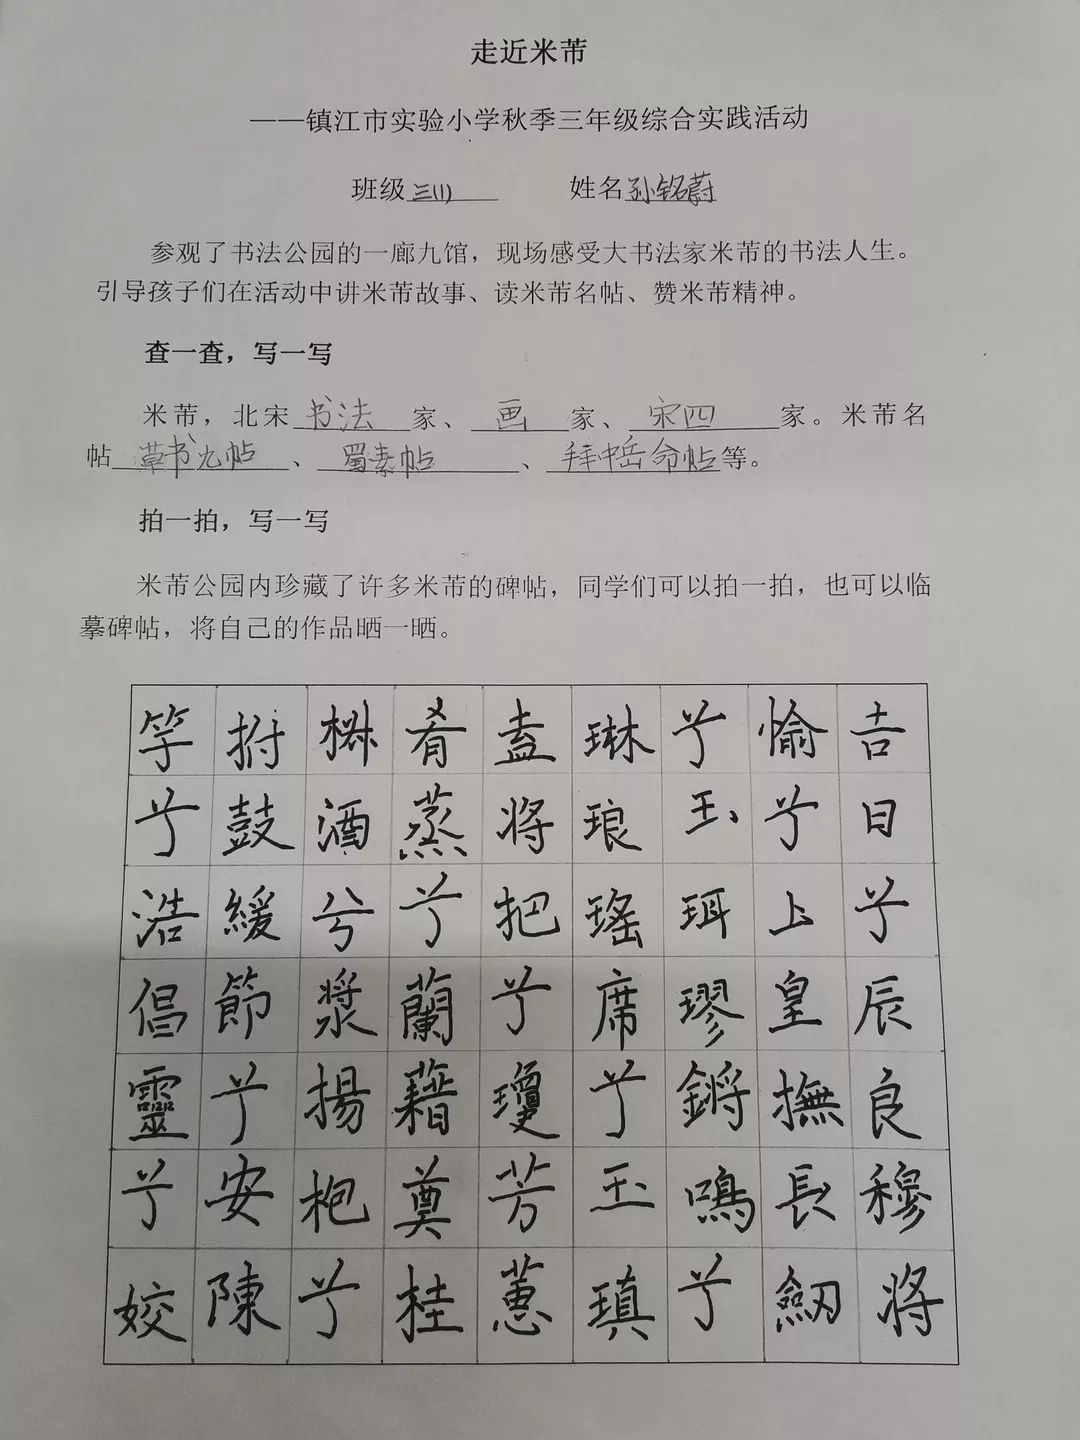 走近米芾
——镇江市实验小学秋季三年级综合实践活动
班级三(1) 姓名孙铭蔚
参观了书法公园的一廊九馆，现场感受大书法家米芾的书法人生。
引导孩子们在活动中讲米芾故事、读米芾名帖、赞米芾精神。
查一查，写一写
米芾，北宋书法家、画家、宋四家。米芾名
帖草书九帖、蜀素帖、拜中岳命帖等。
拍一拍，写一写
米芾公园内珍藏了许多米芾的碑帖，同学们可以拍一拍，也可以临
摹碑帖，将自己的作品晒一晒。
吉日兮辰良穆將
愉兮上皇撫長劒
兮玉珥璆鏘鳴兮
琳琅瑤席兮玉瑱
盍將把兮瓊芳蕙
肴蒸兮蘭藉奠桂
椒酒兮漿揚枹兮
拊鼓緩節兮安陳
竽兮浩倡靈兮姣